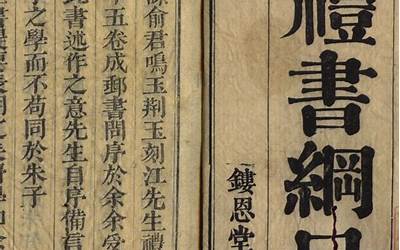 禮書綱目
鏤恩堂
俞君鳴玉荆玉刻江先生禮
十五卷成郵書問序於余余
書述作之意先生自序備言
子之學而不苟同於朱子